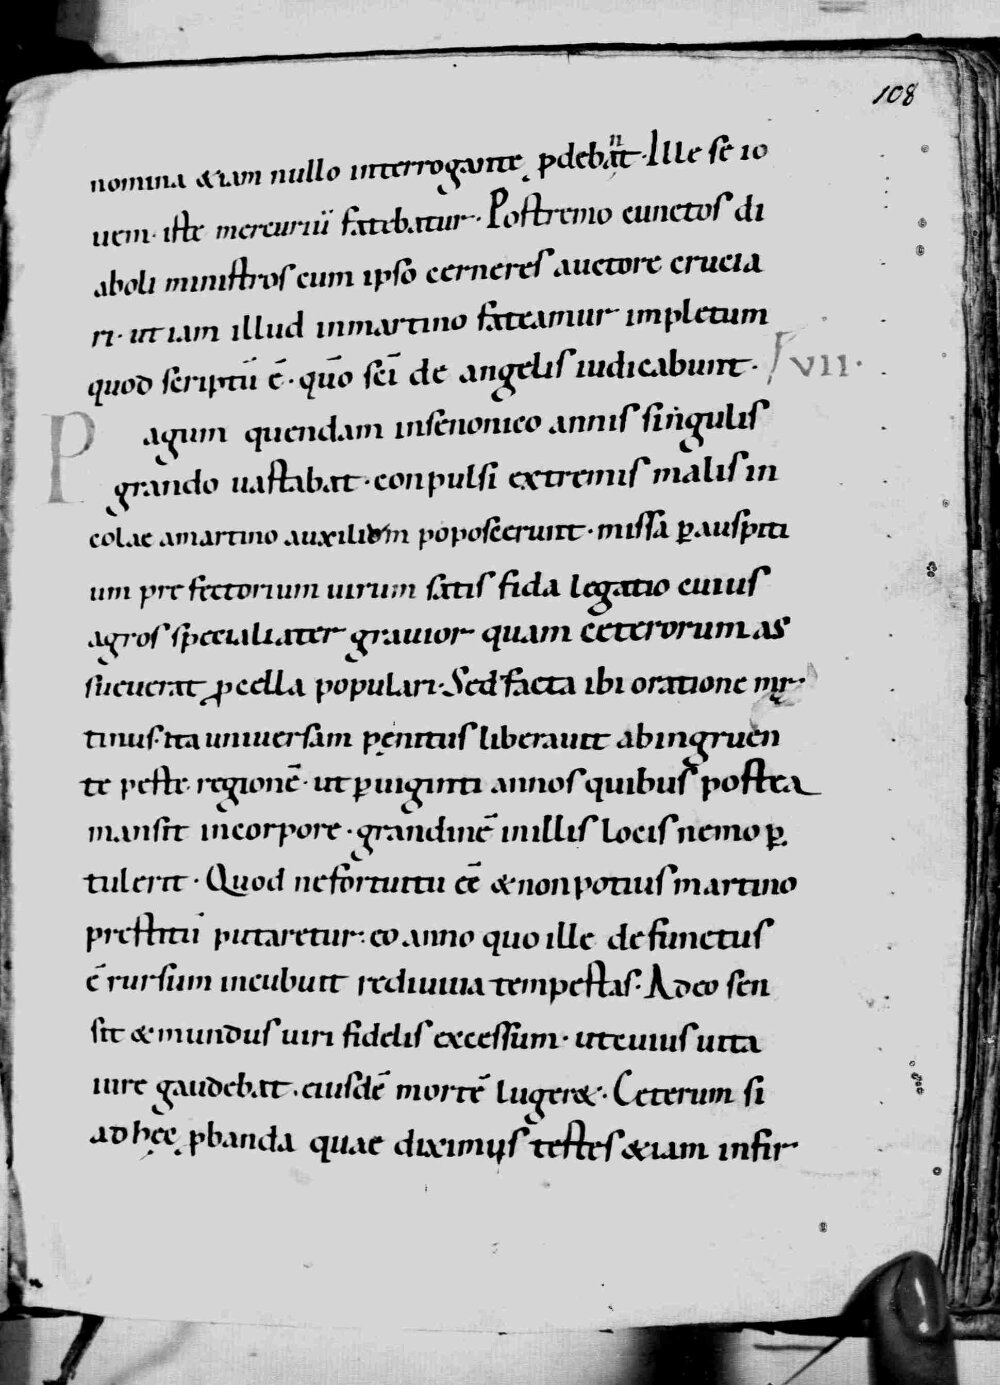 108
nomina &iam nullo interrogante ꝓdebant· Ille se io
uem· iste mercuriū fatebatur· Postremo cunctos di
aboli ministros cum ipso cerneres auctore crucia
ri· ut iam illud inmartino fateamur impletum
quod scriptū ē· qūo scī de angelis iudicabunt· VII·
Pagum quendam insenonico annis singulis
grando uastabat· conpulsi extremis malis in
colae amartino auxilium poposcerunt· missa ꝑauspiti
um prefectorium uirum satis fida legatio cuius
agros specialiater grauior quam ceterorum as
sueuerat ꝓcella populari· Sed facta ibi oratione mr
tinus· ita uniuersam pęnitus liberauit abingruen
te peste· regionē· ut ꝑuiginti annos quibus postea
mansit incorpore· grandinē inillis locis nemo ꝑ
tulerit· Quod nefortuitu eē &nonpotius martino
prestitū putaretur· eo anno quo ille defunctus
ē rursum incubuit rediuiua tempestas· Adeo sen
sit &mundus uiri fidelis excessum· utcuius uita
iure gaudebat· eiusdē mortē luger&· Ceterum si
ad hęc ꝓbanda quae diximus testes &iam infir